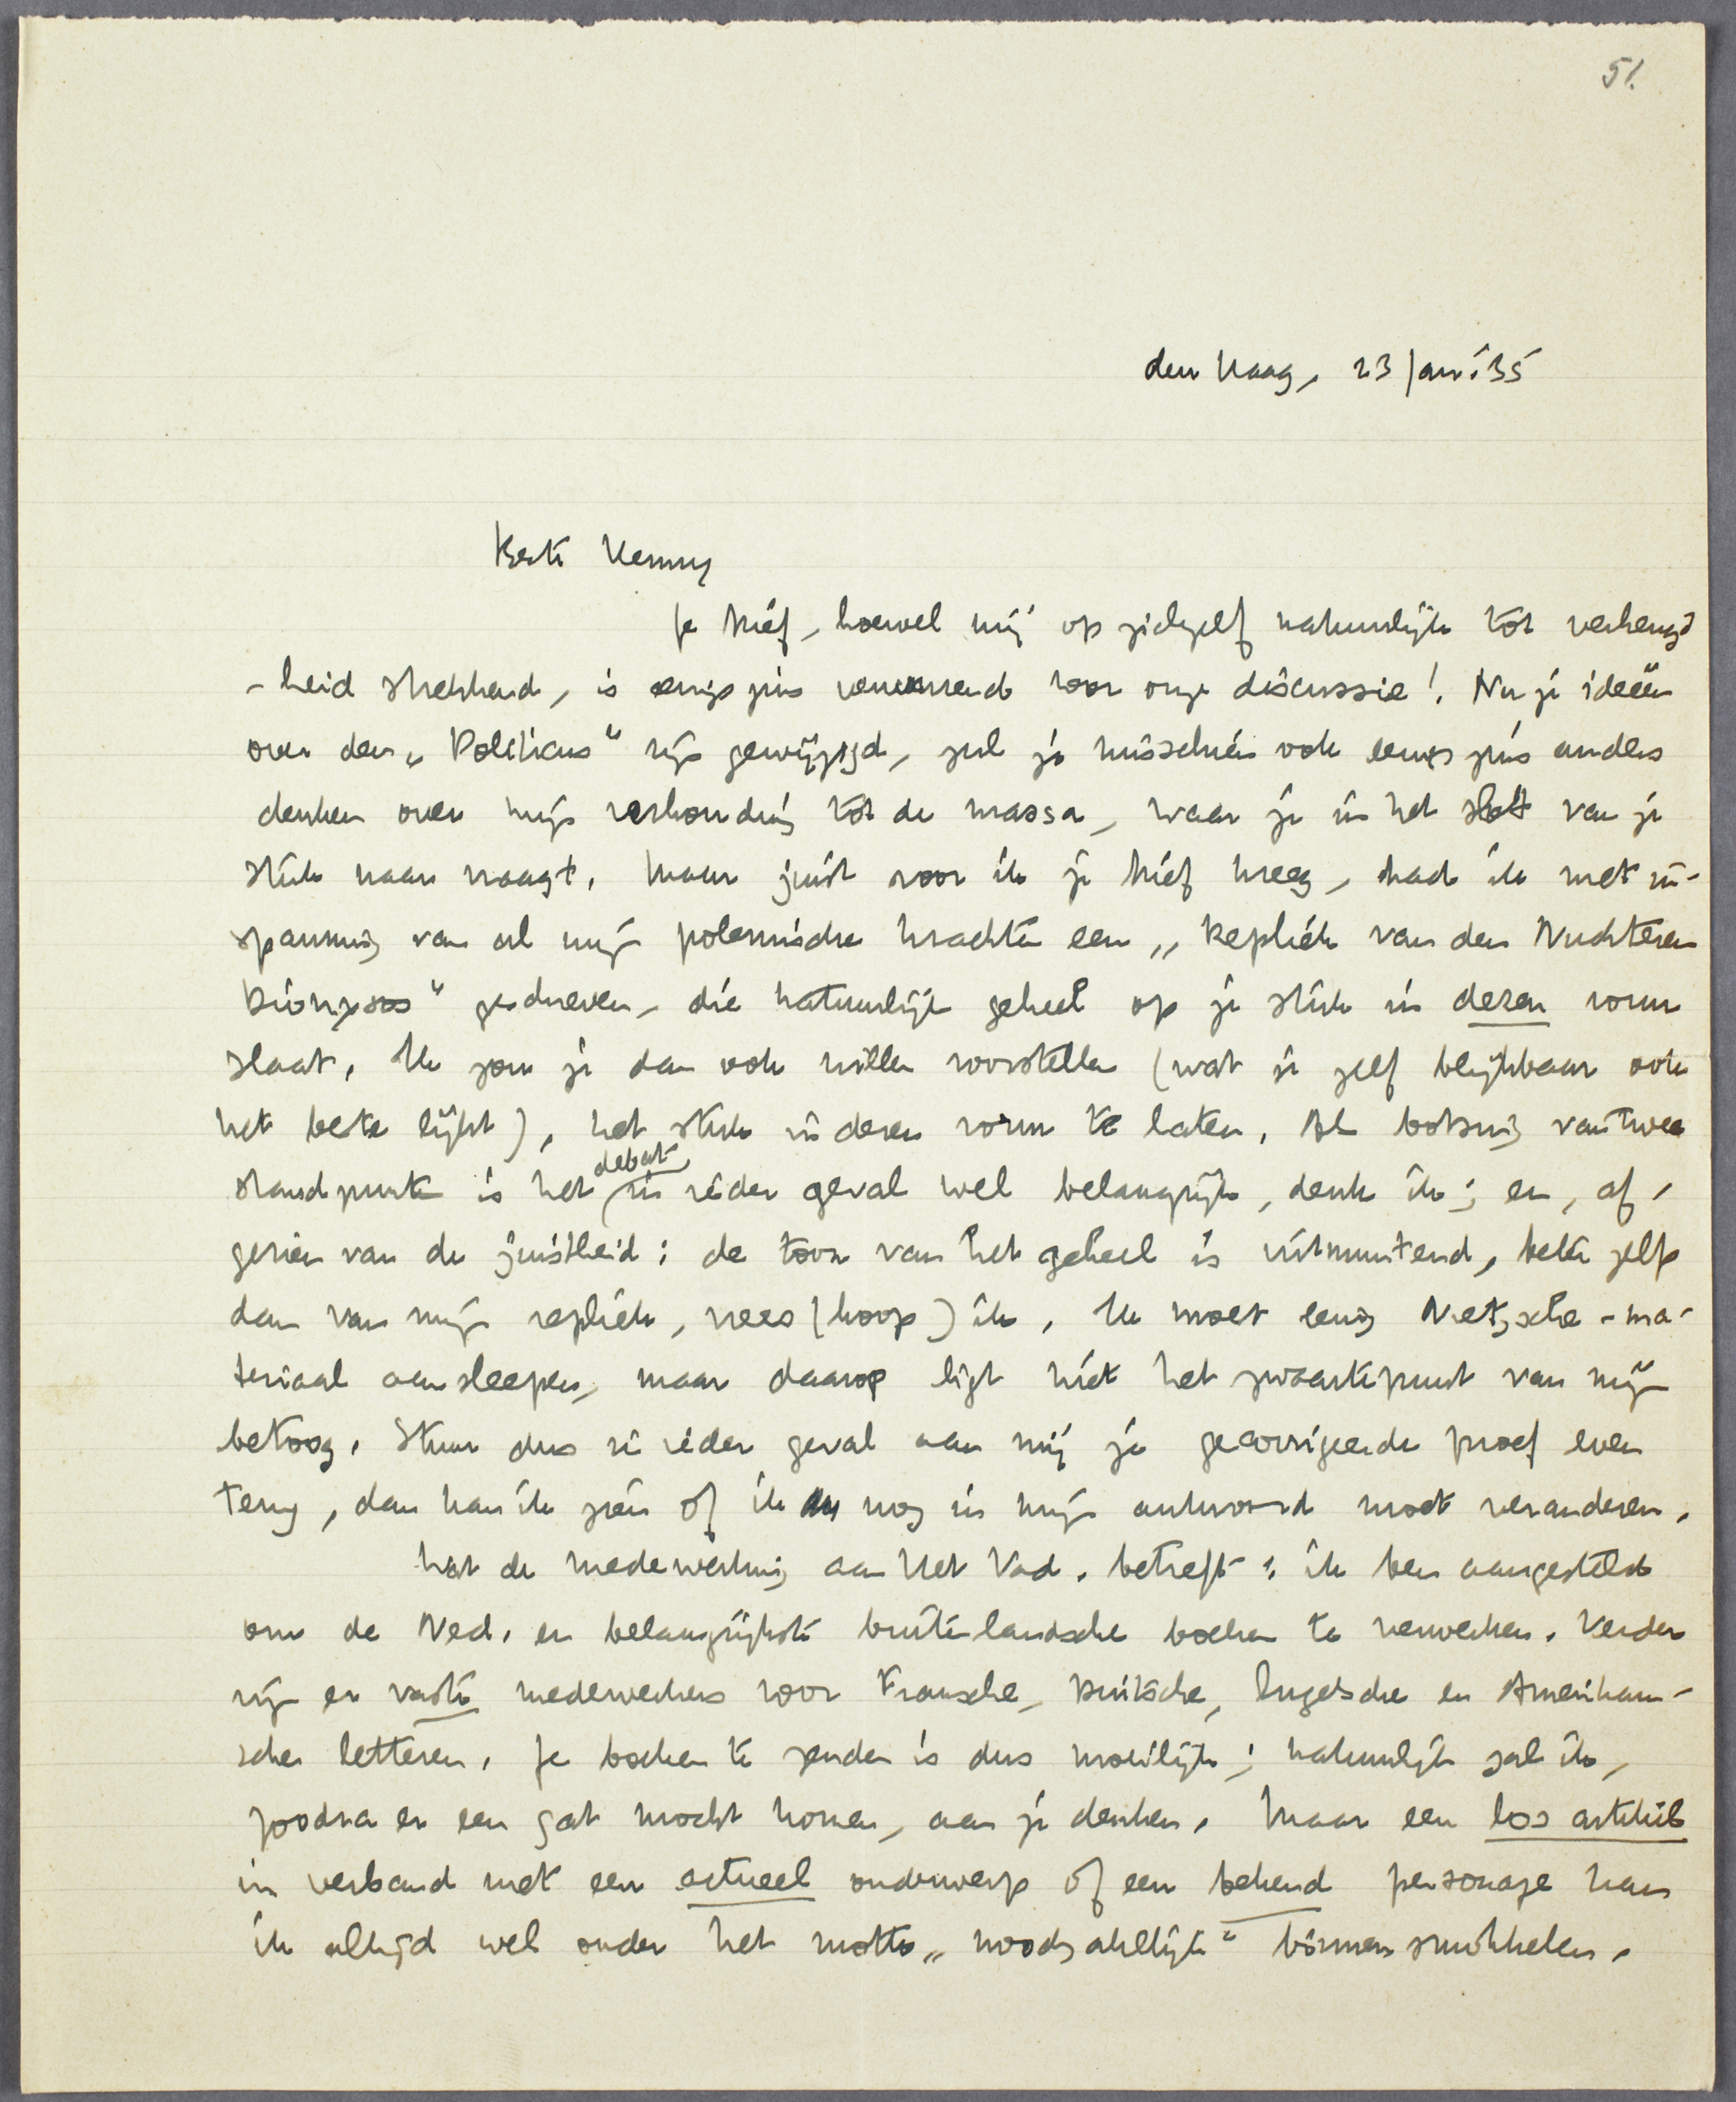 51.
den Haag, 23 Jan. '35
Beste Henny
Je brief, hoewel mij op zichzelf natuurlijk tot verheugd
-heid strekkend, is eenigszins verwarrend voor onze discussie! Nu je ideeën
over den „Politicus" zijn gewijzigd, zul je misschien ook eenigszins anders
denken over mijn verhouding tot de massa, waar je in het slot van je
stuk naar vraagt. Maar juist voor ik je brief kreeg, had ik met in-
spanning van al mijn polemische krachten een „Repliek van den Nuchteren
Dionysos" geschreven, die natuurlijk geheel op je stuk in dezen vorm
slaat. Ik zou je dan ook willen voorstellen (wat je zelf blijkbaar ook
het beste lijkt), het stuk in dezen vorm te laten. Als botsing van twee
standpunten is het debat in ieder geval wel belangrijk, denk ik; en, af-
gezien van de juistheid: de toon van het geheel is uitmuntend, beter zelfs
dan van mijn repliek, vrees (hoop) ik. Ik moet eenig Nietzsche-ma-
teriaal aansleepen, maar daarop ligt niet het zwaartepunt van mijn
betoog. Stuur dus in ieder geval aan mij je gecorrigeerde proef even
terug, dan kan ik zien of ik nog in mijn antwoord moet veranderen.
Wat de medewerking aan Het Vad. betreft: ik ben aangesteld
om de Ned. en belangrijkste buitenlandsche boeken te verwerken. Verder
zijn er vaste medewerkers voor Fransche, Duitsche, Engelsche en Amerikaan-
sche letteren. Je boeken te zenden is dus moeilijk; natuurlijk zal ik,
zoodra er een gat mocht komen, aan je denken. Maar een los artikel
in verband met een actueel onderwerp of een bekend personage kan
ik altijd wel onder het motto „noodzakelijk" binnen smokkelen.